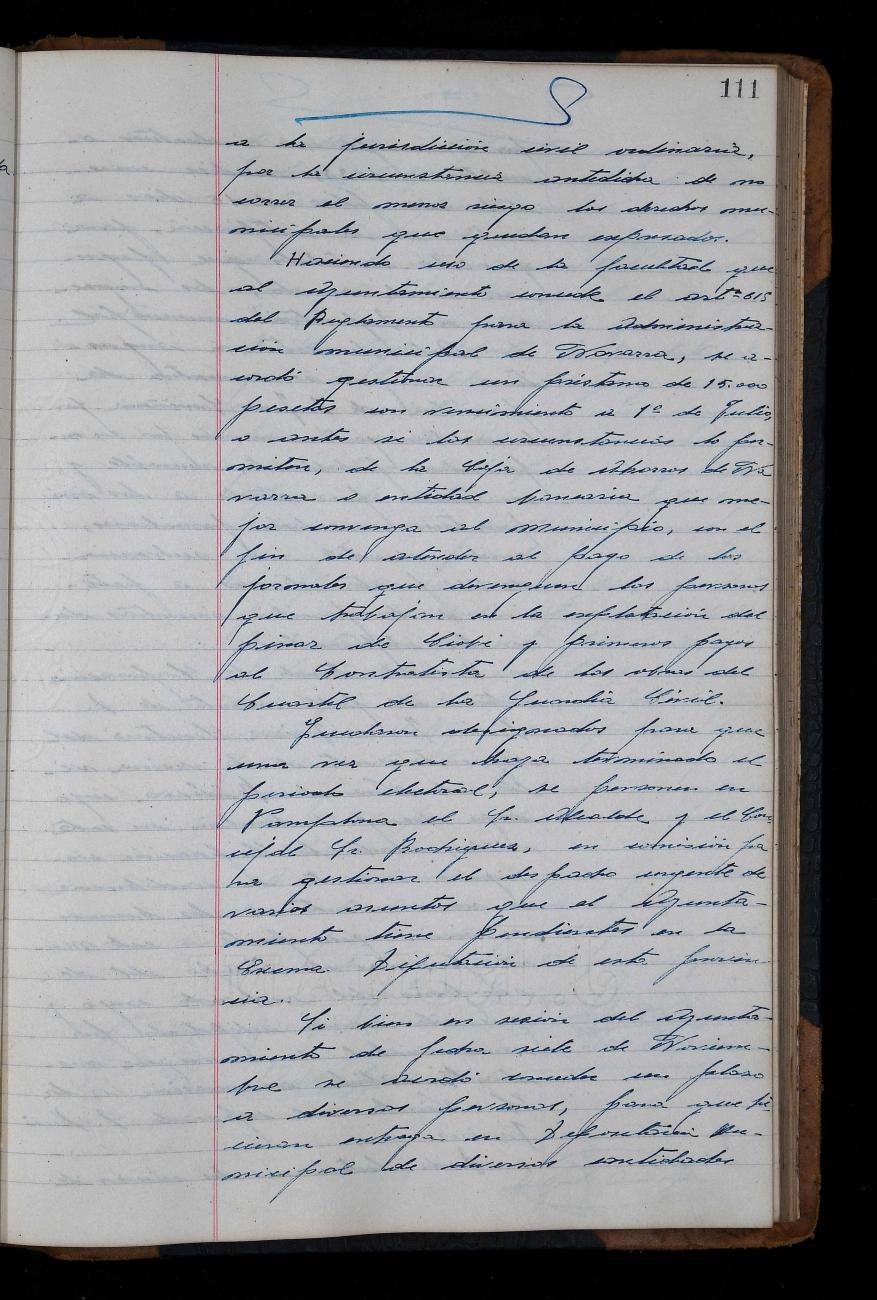 111
a la jurisdicción civil ordinaria,
por la circunstancia antedicha de no
correr el menor riesgo los derechos mu-
nicipales que quedan expresados.
Haciendo uso de la facultad que
al Ayuntamiento concede el artº 615
del Reglamento para la Administra-
ción municipal de Navarra, se a-
cordó gestionar un préstamo de 15.000
pesetas con vencimiento a 1º de Julio,
o antes si las circunstancias lo per-
miten, de la Caja de Ahorros de Na
varra o entidad bancaria que me-
jor convenga al Municipio, con el
fin de atender al pago de los
jornales que devenguen las personas
que trabajan en la explotación del
pinar de y primeros pagos
al Contratista de las obras del
Cuartel de la Guardia Civil.
Quedaron designados para que
una vez que haya terminado el
periodo electoral, se personen en
Pamplona el Sr. Alcalde y el Con
cejal Sr. Rodriguez, en comisión pa
ra gestionar el despacho urgente de
varios asuntos que el Ayunta-
miento tiene pendientes en la
Excma. Diputación de esta provin-
cia.
Si bien en sesión del Ayunta-
miento de fecha siete de Noviem-
bre se acordó conceder un plazo
a diversas personas, para que hi-
cieran entrega en Depositaría Mu-
nicipal de diversas cantidades